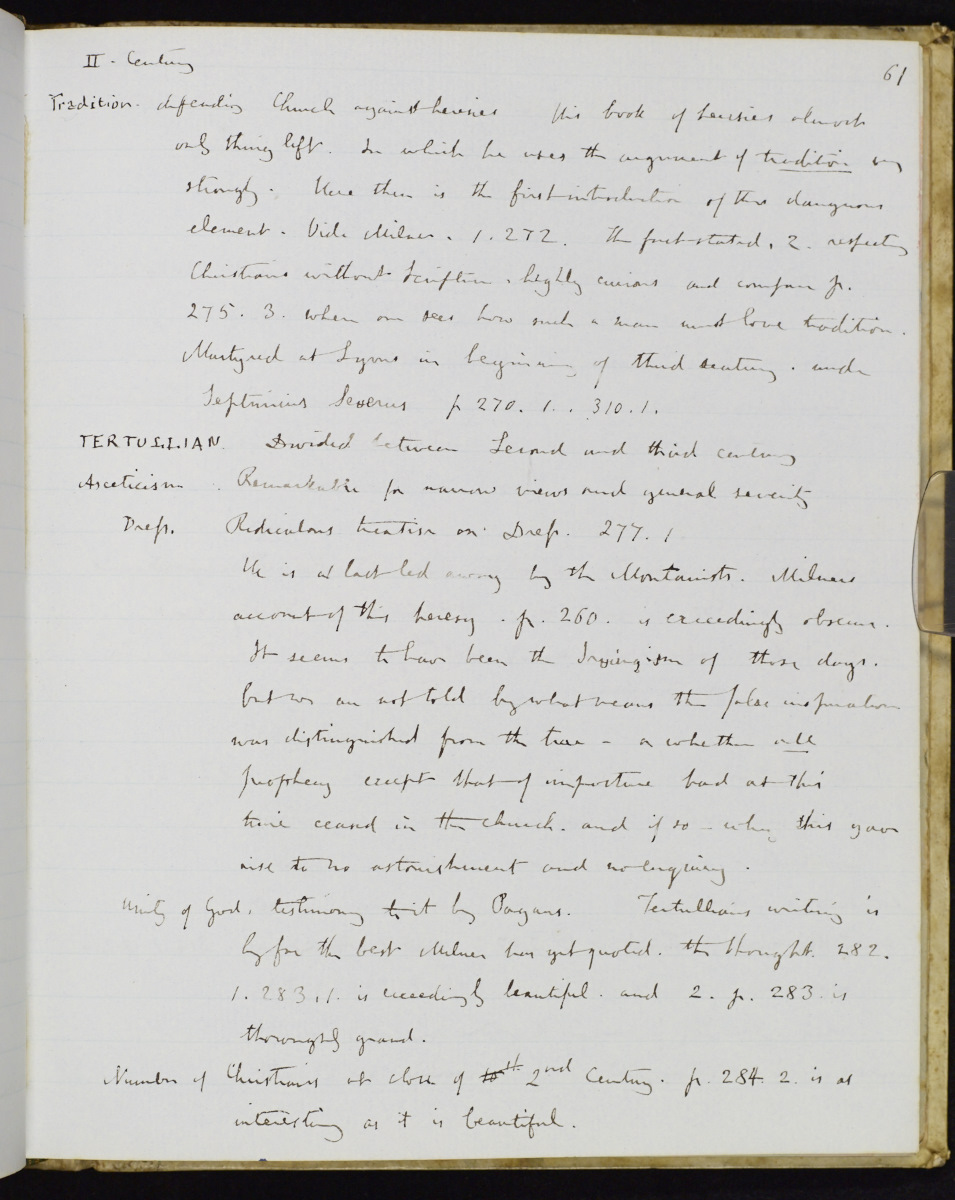 II - Century
61
Tradition. defending Church against heresies His book of heresies almost
only thing left. In which he uses the argument of tradition very
strongly. Here then is the first introduction of this dangerous
element. Vide Milner. 1. 272. The fact stated, 2. respecting
Christians without Scripture. highly curious and compare p.
275. 3. where one sees how such a man must love tradition.
Martyred at Lyons in beginning of third century. under
Septimius Severus p 270. 1. . 310. 1.
TERTULLIAN. Divided between Second and third century
Asceticism. Remarkable for narrow views and general severity
Dress. Ridiculous treatise on Dress. 277. 1
He is at last led away by the Montanists. Milners
account of this heresy. p. 260. is exceedingly obscure.
It seems to have been the Irvingism of those days.
but we are not told by what means the false inspiration
was distinguished from the true - or whether all
prophecy except that of imposture had at this
time ceased in the church. and if so - why this gave
rise to no astonishment and no enquiry.
Unity of God. testimony to it by Pagans. Tertullians writing is
by far the best Milner has yet quoted. the thought. 282.
1. 283. 1. is exceedingly beautiful. and 2. p. 283. is
thoroughly grand.
Number of Christians at close of 2nd Century. p. 284. 2. is as
interesting as it is beautiful.